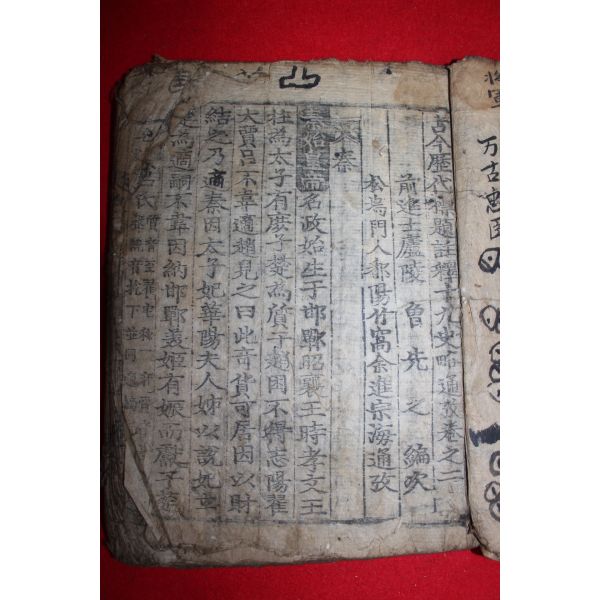 将軍
万古忠臣
古今歷代標題註釋十九史略通攷卷之二
前進士廬陵 曾 先 之 編次
松塢門人鄱陽竹窩余進宗海通攷
秦
秦始皇帝名政始生于邯鄲昭襄王時孝文王
柱為太子有庶子楚為質于趙困不得志陽翟
大賈呂不韋適趙見之曰此奇貨可居因以財
結之乃適秦因太子妃華陽夫人姊以說妃立
楚為適嗣不韋因納邯鄲美姬有娠而獻于楚